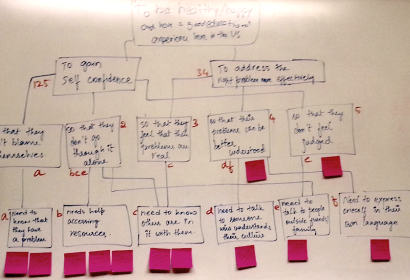 To be healthy/happy
and have a good educational
experience here in the US
To gain
Self confidence
To address the
right problem more effectively
125
34
that they
n't blame
emselves
so that they
don't go
through it
alone
so that they
feel that their
problems are
real
so that their
problems can be
better
understood
so that they
don't feel
judged
2
3
4
5
a
bce
c
df
e
a
need to
know that they
have a
problem
b
needs help
accessing
resources
c
need to know
others are in
it with them
d
need to talk
to someone
who understands
their culture
e
need to
talk to people
outside friends/
family
f
Need to express
oneself in their
own language